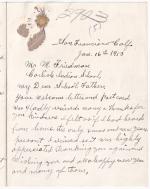 San Francisco Calif.
Jan. 16th 1913
Mr. M. Friedman
Carlisle Indian School,
My Dear School Father
Your welcome letter and post card
was gladly received many thanks for
you kindness I felt as if I had heard
from home the only and
present I received it was highly
appreciated thanking you again
Wishing you and also happy new year
and many of them,